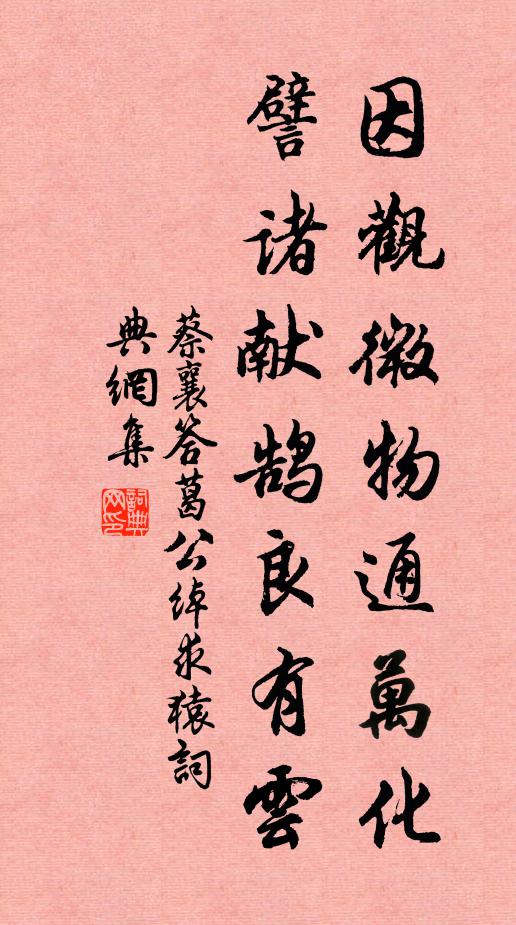 因觀微物通萬化
譬诸献鹄良有雲
蔡襄答葛公綽求猿詞
典網集
詞典
网印